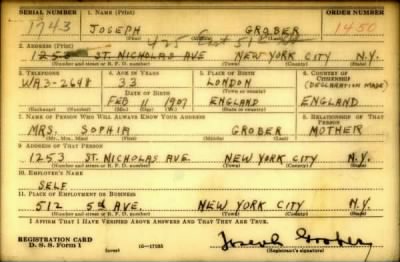 SERIAL NUMBER 1. NAME (Print) ORDER NUMBER
1743 JOSEPH GROBER 1450
(First) (Middle) (Last)
425 East 51
2. ADDRESS (Print)
1253 ST. NICHOLAS AVE NEW YORK CITY N.Y.
(Number and street or R. F. D. number) (Town) (County) (State)
3. TELEPHONE 4. AGE IN YEARS 5. PLACE OF BIRTH 6. COUNTRY OF CITIZENSHIP
WA3-2648 33 LONDON (DECLARATION MADE)
DATE OF BIRTH (Town or county)
FEB 11 1907 ENGLAND ENGLAND
(Exchange) (Number) (Mo.) (Day) (Yr.) (State or country)
7. NAME OF PERSON WHO WILL ALWAYS KNOW YOUR ADDRESS 8. RELATIONSHIP OF THAT PERSON
MRS. SOPHIA GROBER MOTHER
(Mr., Mrs., Miss) (First) (Middle) (Last)
9. ADDRESS OF THAT PERSON
1253 ST. NICHOLAS AVE. NEW YORK CITY N.Y.
(Number and street or R. F. D. number) (Town) (County) (State)
10. EMPLOYER'S NAME
SELF
11. PLACE OF EMPLOYMENT OR BUSINESS
512 5th AVE. NEW YORK CITY N.Y.
(Number and street or R. F. D. number) (Town) (County) (State)
I AFFIRM THAT I HAVE VERIFIED ABOVE ANSWERS AND THAT THEY ARE TRUE.
REGISTRATION CARD
D. S. S. FORM 1 (over) 16-17105 Joseph Grober
(Registrant's signature)